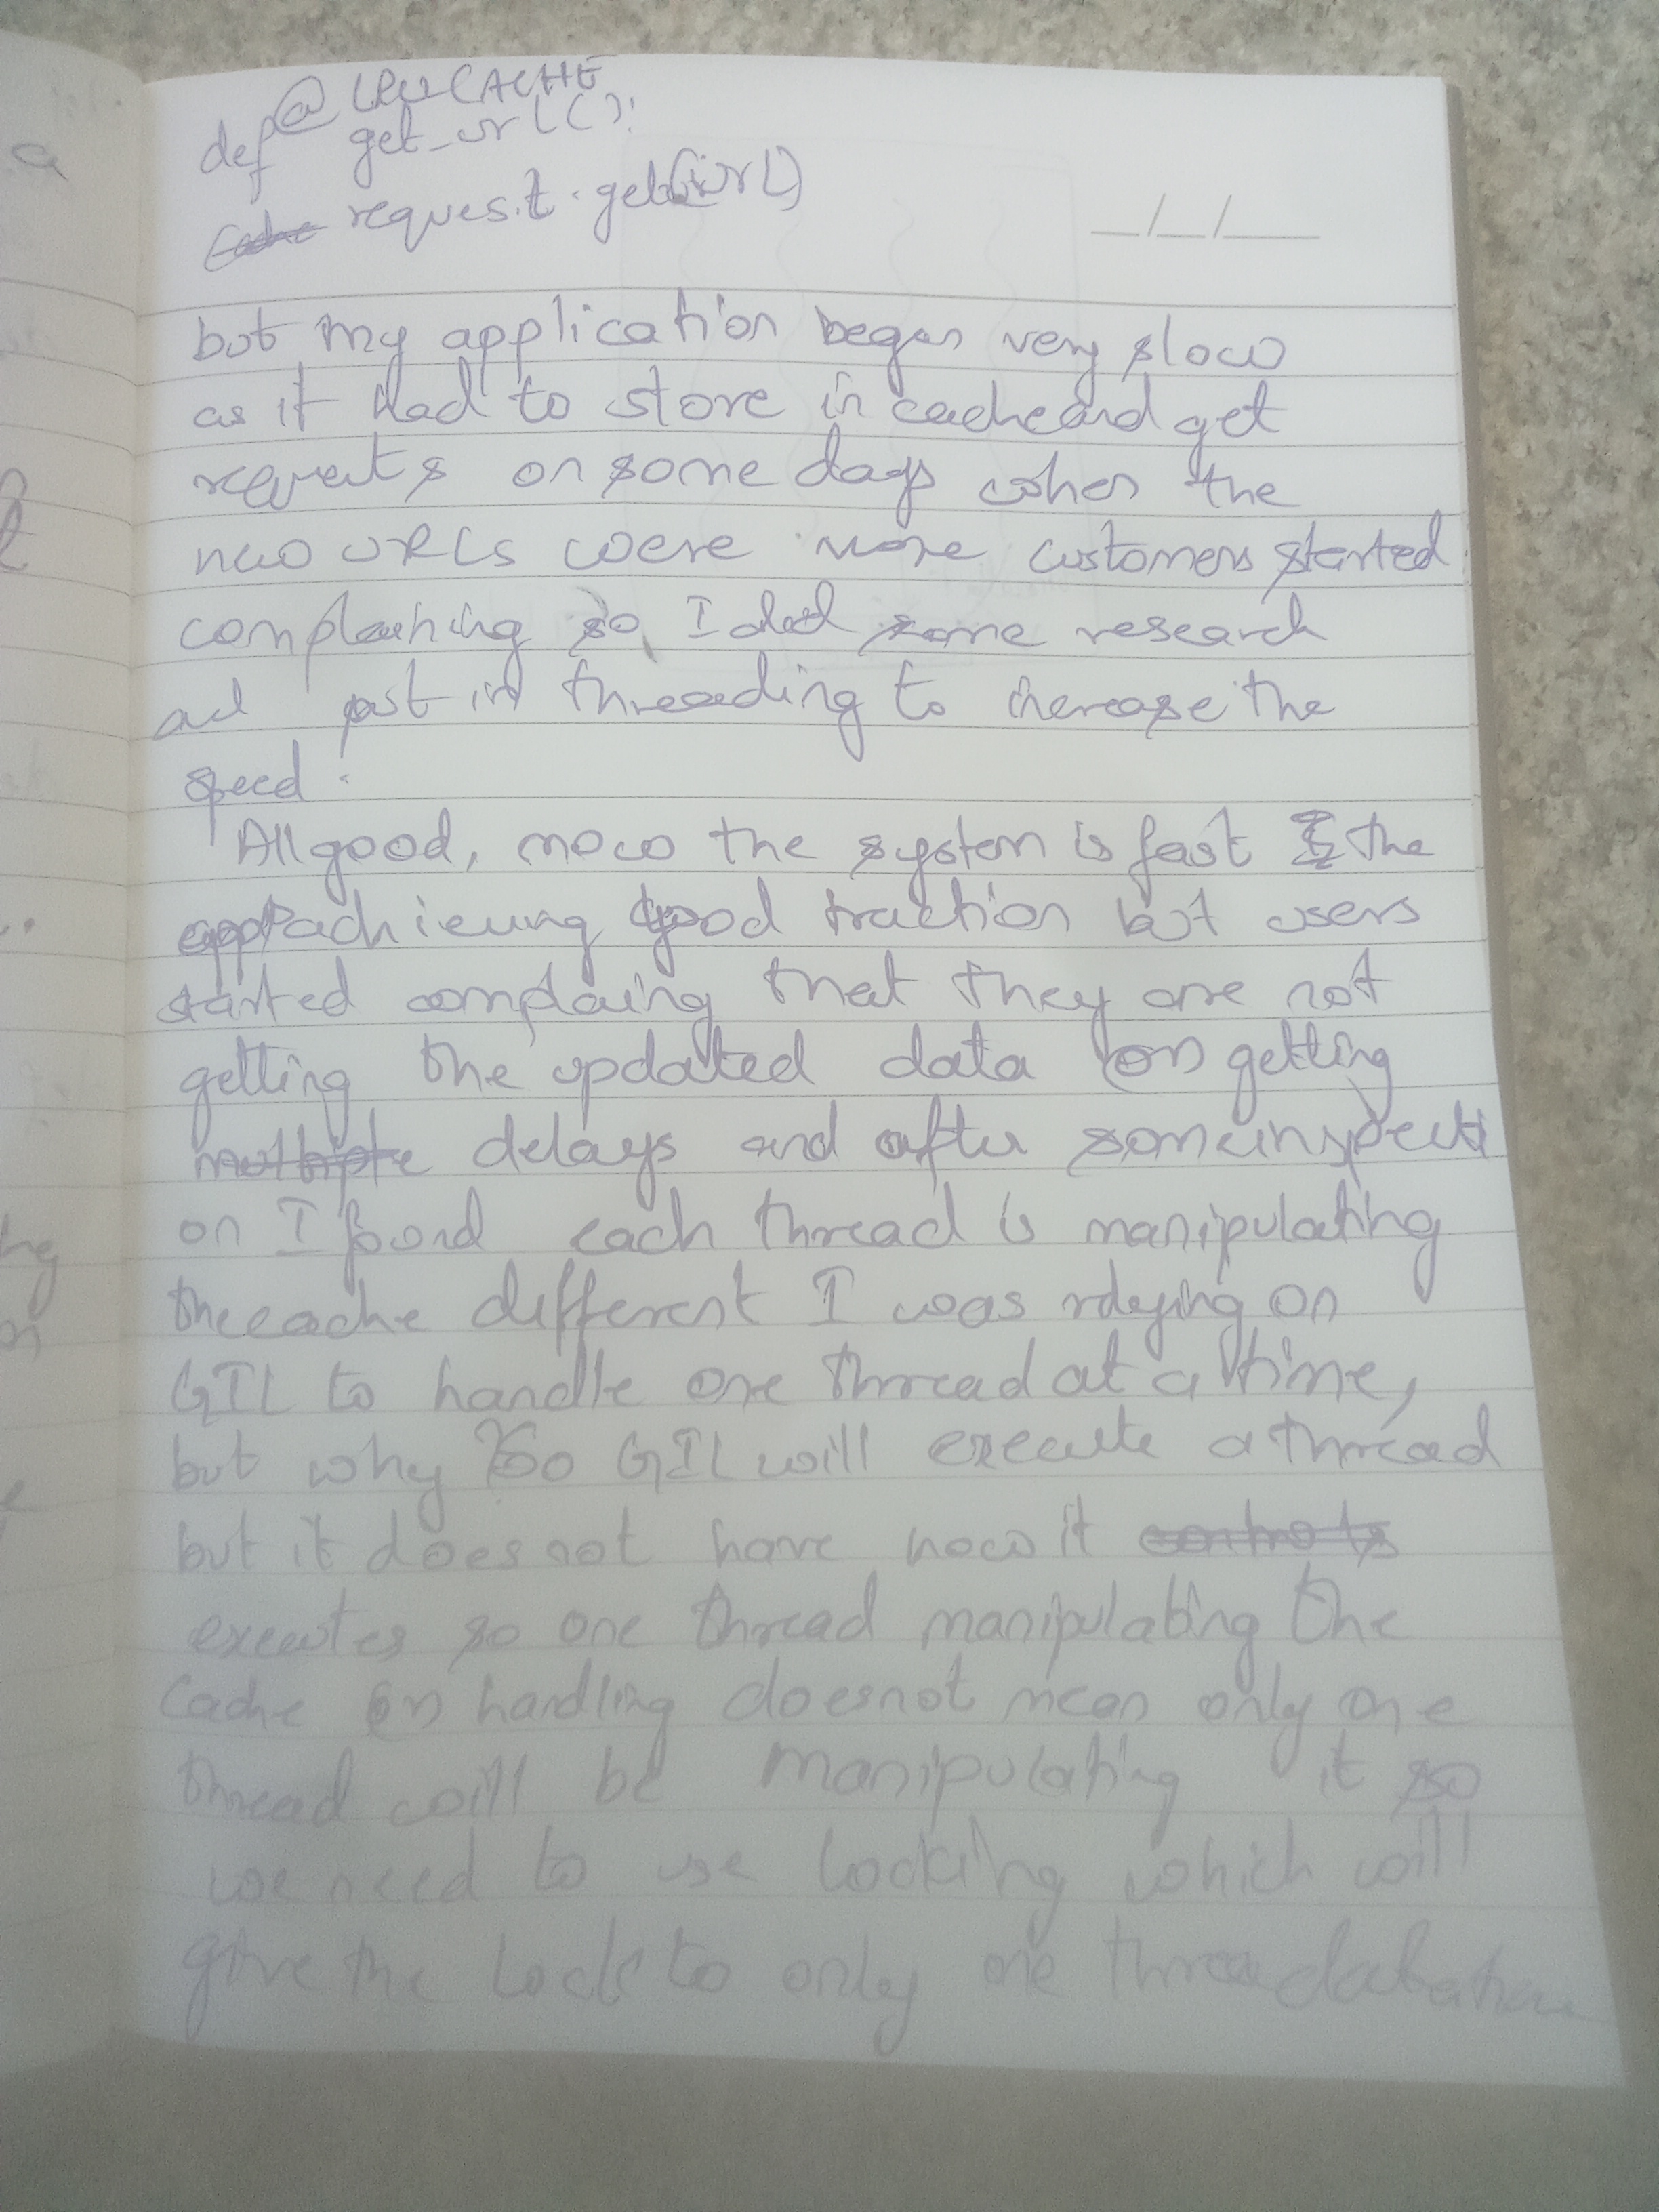 @ LRU CACHE
def get_url():
request.get(url)
_/_/__
but my application began very slow
as it had to store in cache and get
requests on some days when the
new URLs were more customers started
complaining so, I did some research
and put in threading to increase the
speed.
All good, now the system is fast & the
app achieving good traction but users
started complaing that they are not
getting the updated data or getting
delays and after some inspecti
on I found each thread is manipulating
the cache different I was relying on
GIL to handle one thread at a time,
but why? So GIL will execute a thread
but it does not have how it
executes so one thread manipulating the
Cache or handling does not mean only one
thread will be manipulating it so
we need to use locking which will
give the lock to only one thread at a time